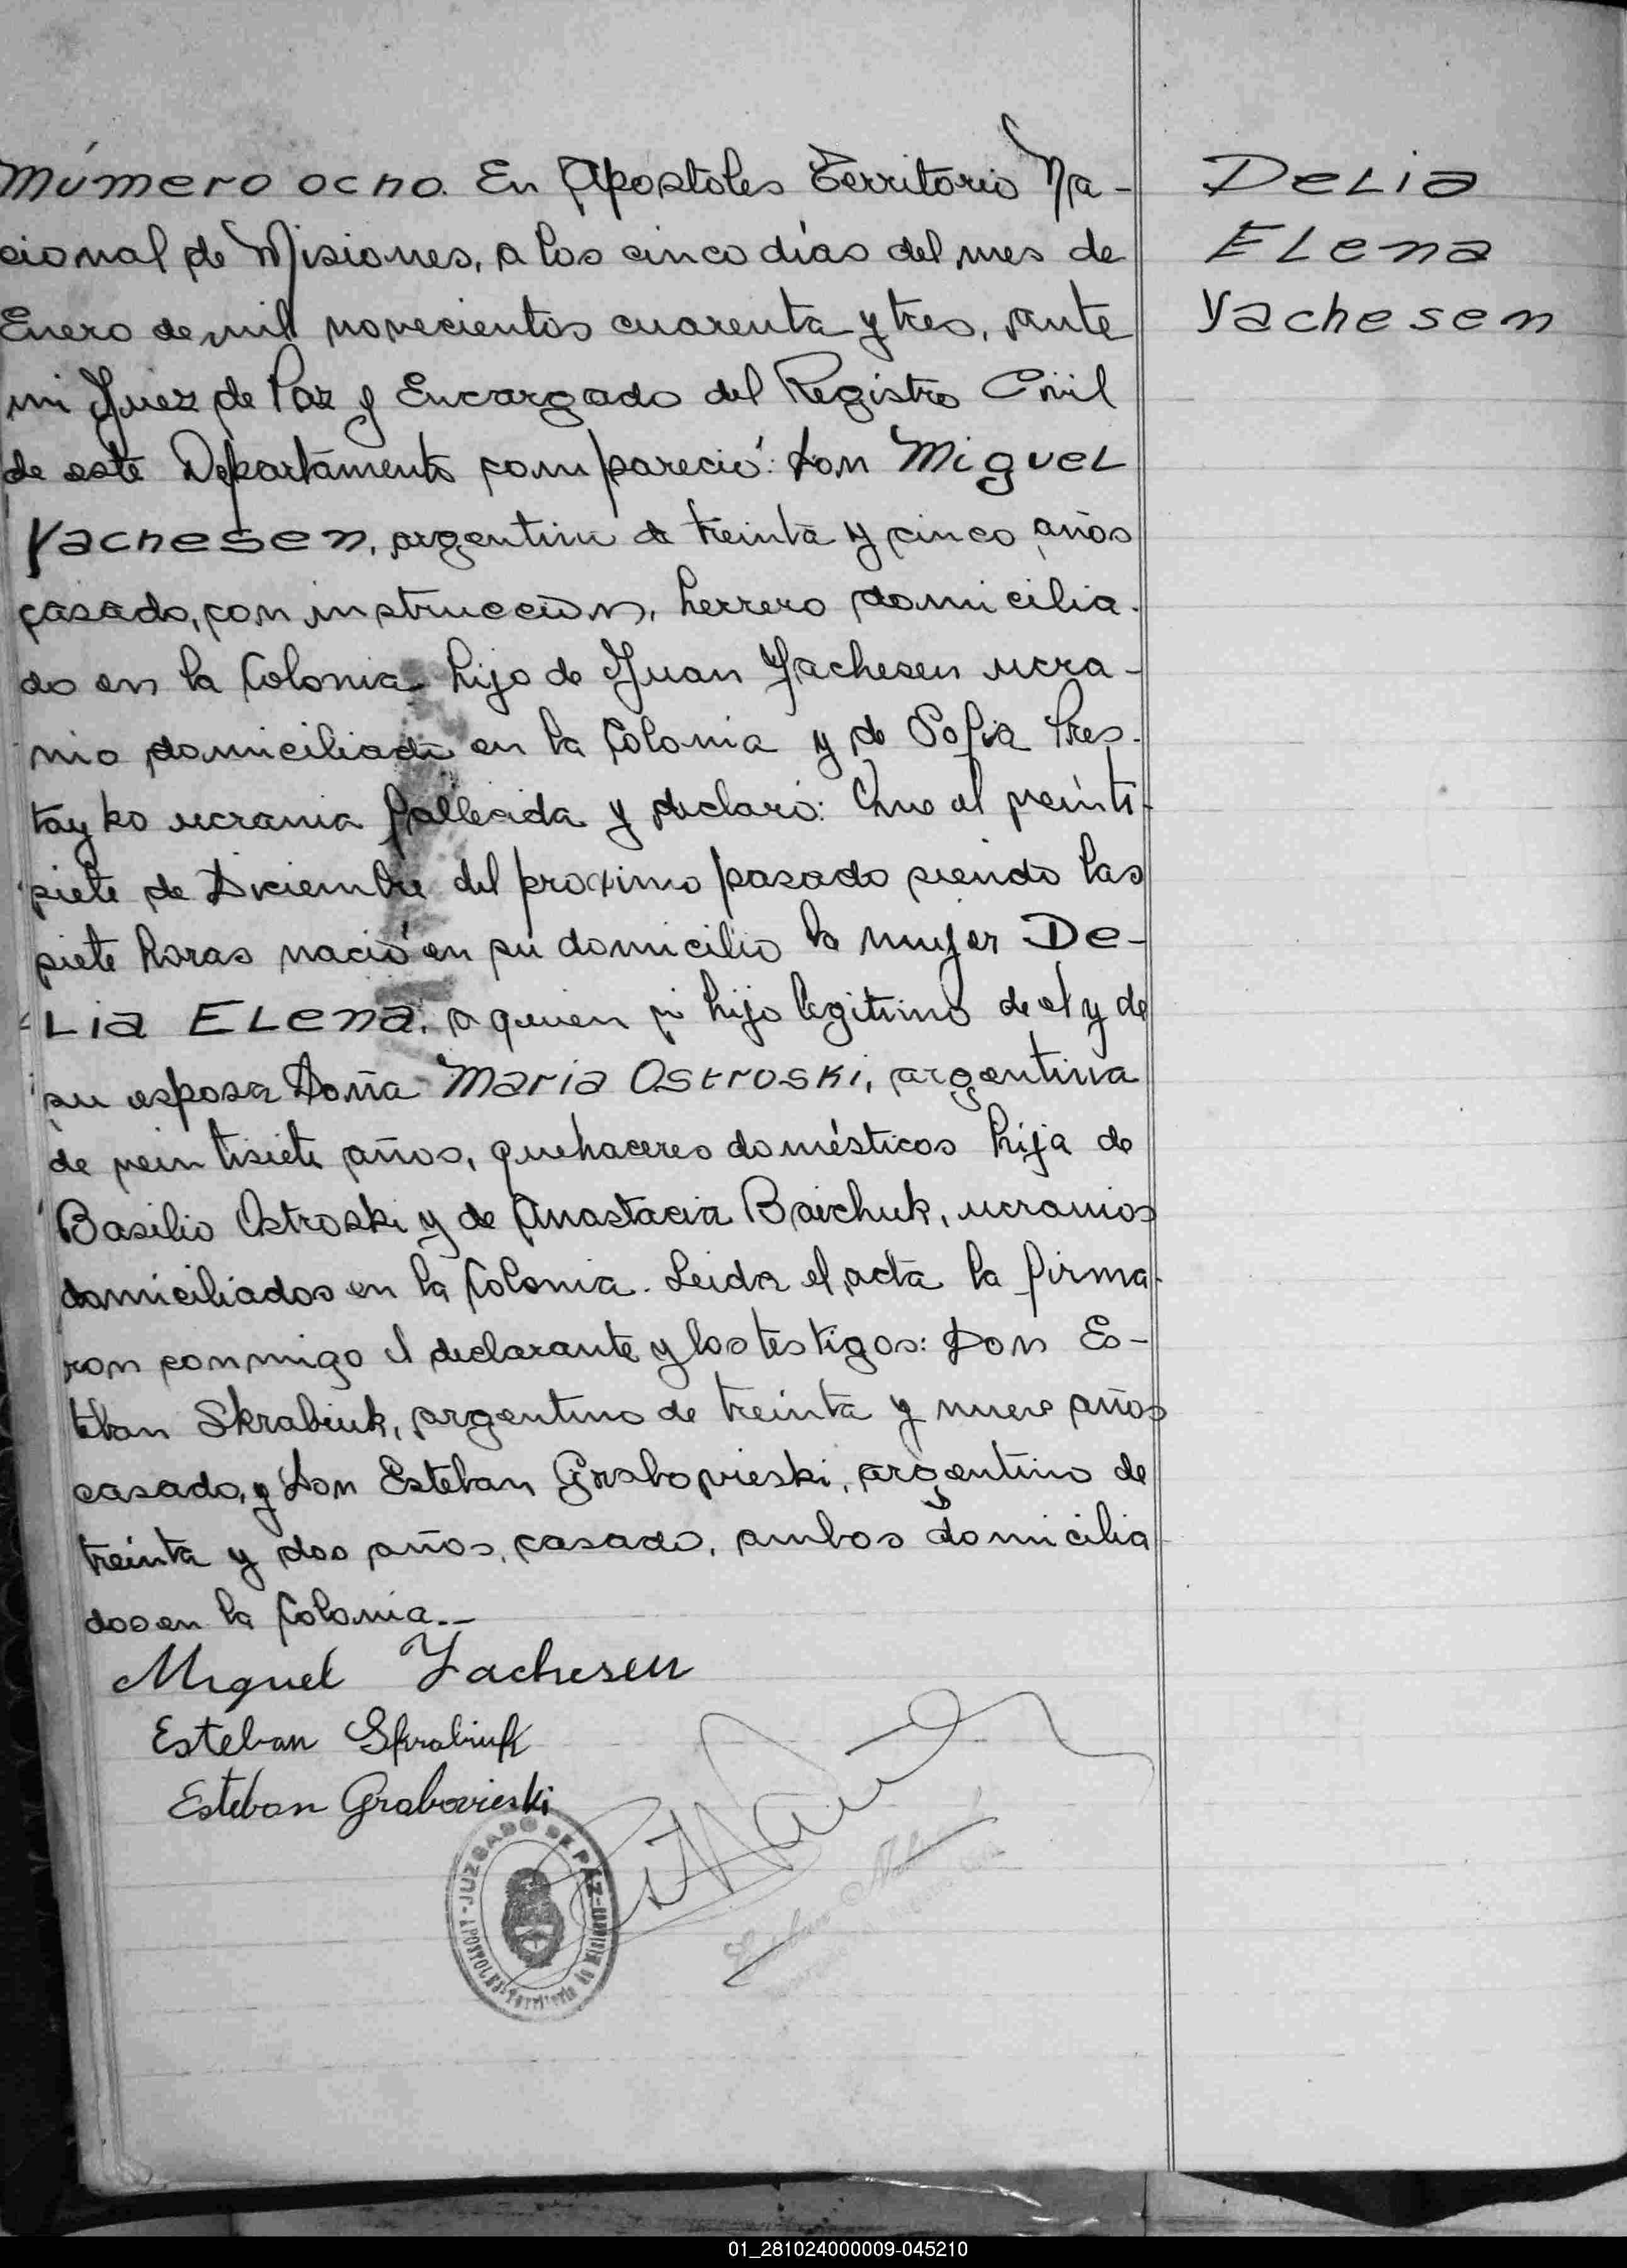 Número ocho. En Apóstoles Territorio Na-
cional de Misiones, a los cinco días del mes de
Enero de mil novecientos cuarenta y tres, ante
mi Juez de Paz y Encargado del Registro Civil
de este Departamento compareció: Don Miguel
Yachesen, argentino de treinta y cinco años
casado, con instruccion, herrero domicilia-
do en la Colonia hijo de Juan Yachesen ucra-
nio domiciliado en la Colonia y de Sofia Pres-
tayko ucrania fallecida y declaró: Que el veinti-
siete de Diciembre del proximo pasado siendo las
siete horas nació en su domicilio la mujer De-
lia Elena, a quien hijo legitimo de el y de
su esposa Doña Maria Ostroski, argentina
de veintisiete años, quehaceres domésticos hija de
Basilio Ostroski y de Anastacia Baichuk, ucranios
domiciliados en la Colonia. Leida el acta la firma-
ron conmigo el declarante y los testigos: Don Es-
teban Skrabiuk, argentino de treinta y nueve años
casado, y Don Esteban Grabovieski, argentino de
treinta y dos años, casado, ambos domicilia
dos en la Colonia.—
Miguel Yachesen
Esteban Skrabiuk
Esteban Grabovieski
JUZGADO DE PAZ
APOSTOLES Territorio de Misiones
Delia
Elena
Yachesen
01_281024000009-045210